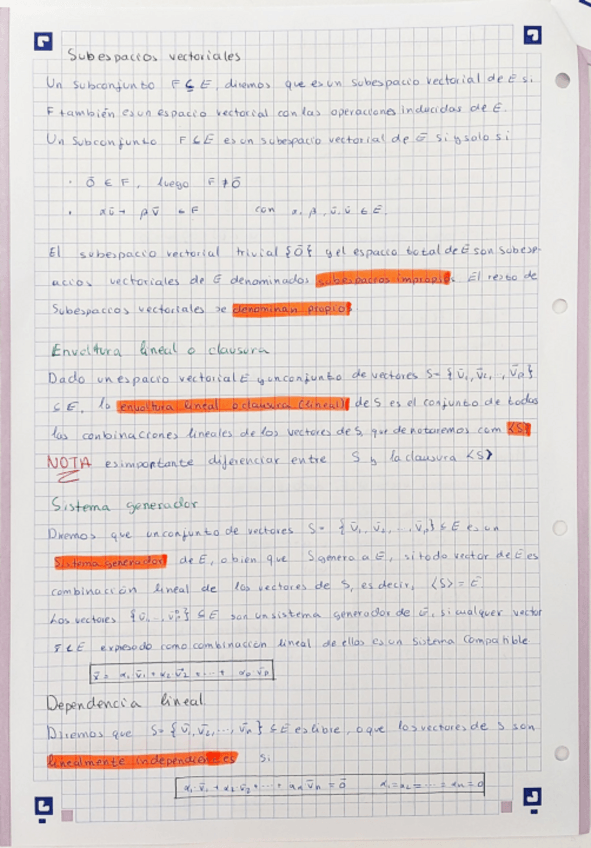 Subespacios vectoriales
Un subconjunto F ⊆ E, diremos que es un subespacio vectorial de E si
F también es un espacio vectorial con las operaciones inducidas de E.
Un subconjunto F ⊆ E es un subespacio vectorial de E si y solo si
· ō ∈ F, luego F ≠ ō
· αū + βv̄ ∈ F con α, β, ū, v̄ ∈ E.
El subespacio vectorial trivial {ō} y el espacio total de E son subesp-
acios vectoriales de E denominados subespacios impropios. El resto de
Subespacios vectoriales se denominan propios
Envoltura lineal o clausura
Dado un espacio vectorial E y un conjunto de vectores S= {v̄₁, v̄₂, ..., v̄p}
⊆ E, la envoltura lineal o clausura (lineal) de S es el conjunto de todas
las conbinaciones lineales de los vectores de S, que denotaremos com <S>
NOTA es importante diferenciar entre S y la clausura <S>
Sistema generador
Diremos que un conjunto de vectores S= {v̄₁, v̄₂, ..., v̄p} ⊆ E es un
Sistema generador de E, o bien que S genera a E, si todo vector de E es
combinación lineal de los vectores de S, es decir, <S> = E
Los vectores {v̄₁, ..., v̄p} ⊆ E son un sistema generador de E, si cualquier vector
x̄ ∈ E expresado como combinación lineal de ellos es un sistema compatible
x̄ = α₁ v̄₁ + α₂ v̄₂ + ... + αp v̄p
Dependencia lineal
Diremos que S= {v̄₁, v̄₂, ..., v̄p} ⊆ E es libre, o que los vectores de S son
linealmente independientes si
α₁ v̄₁ + α₂ v̄₂ + ... + αn v̄n = ō α₁=α₂= ... = αn = 0